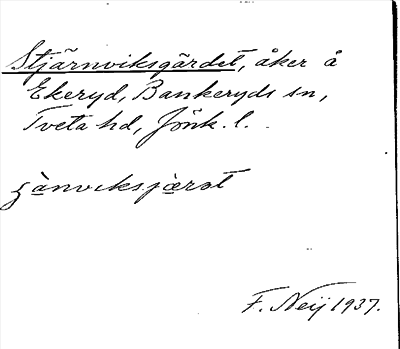 Stjärnviksgärdet, åker å
Ekeryd, Bankeryds sn,
Tveta hd, Jönk. l.
F. Neij 1937.